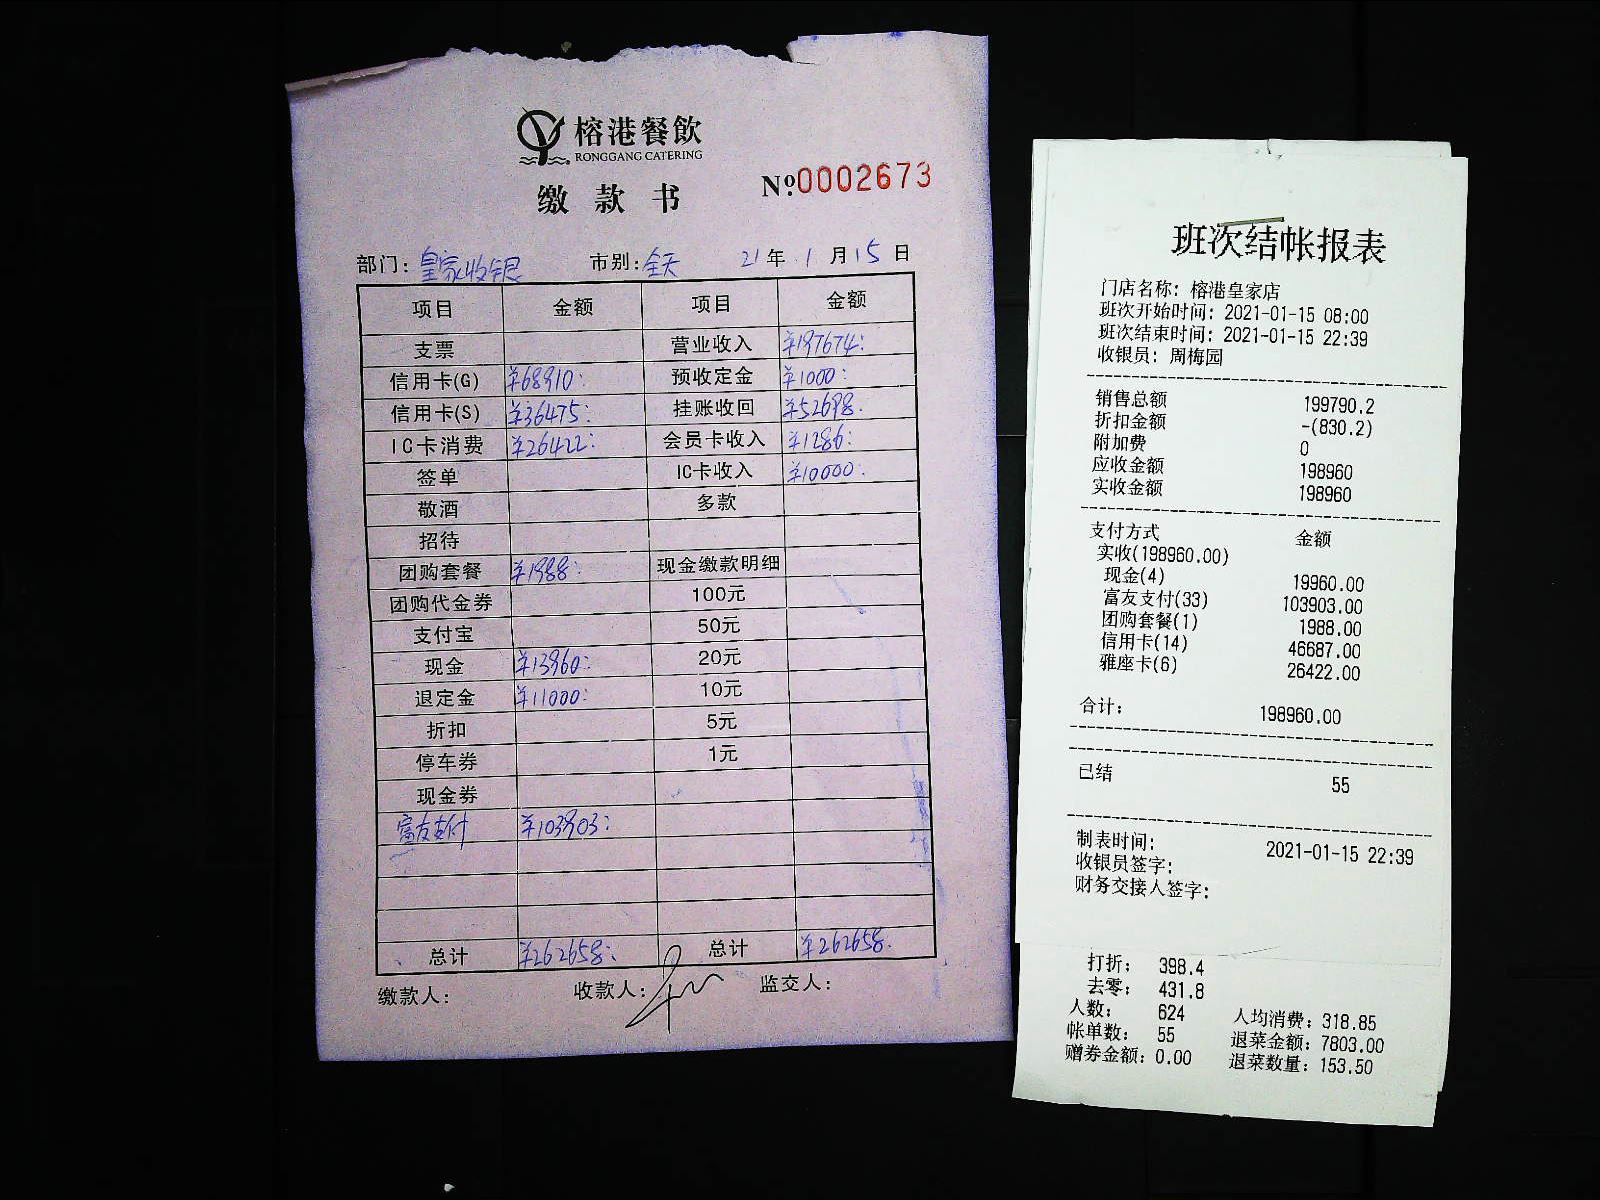 榕港餐飲
RONGGANG CATERING
缴款书
№0002673
部门：皇家收银 市别：全天 21年1月15日
项目 金额 项目 金额
支票 营业收入 ¥197674:
信用卡(G) ¥68910: 预收定金 ¥1000:
信用卡(S) ¥36475: 挂账收回 ¥52698.
IC卡消费 ¥26422: 会员卡收入 ¥1286:
签单 IC卡收入 ¥10000:
敬酒 多款
招待
团购套餐 ¥1988: 现金缴款明细
团购代金券 100元
支付宝 50元
现金 ¥13960: 20元
退定金 ¥11000: 10元
折扣 5元
停车券 1元
现金券
富友支付 ¥103903:
总计 ¥262658: 总计 ¥262658.
缴款人： 收款人： 监交人：
班次结帐报表
门店名称：榕港皇家店
班次开始时间：2021-01-15 08:00
班次结束时间：2021-01-15 22:39
收银员：周梅园
销售总额 199790.2
折扣金额 -(830.2)
附加费 0
应收金额 198960
实收金额 198960
支付方式 金额
实收(198960.00)
现金(4) 19960.00
富友支付(33) 103903.00
团购套餐(1) 1988.00
信用卡(14) 46687.00
雅座卡(6) 26422.00
合计： 198960.00
已结 55
制表时间： 2021-01-15 22:39
收银员签字：
财务交接人签字：
打折： 398.4
去零： 431.8
人数： 624 人均消费：318.85
帐单数： 55 退菜金额：7803.00
赠券金额：0.00 退菜数量：153.50